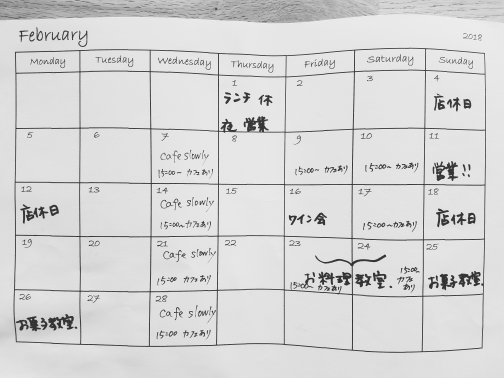 February
2018
Monday Tuesday Wednesday Thursday Friday Saturday Sunday
1 2 3 4
ランチ 休
夜 営業
店休日
5 6 7 8 9 10 11
Cafe slowly
15:00~ カフェあり
15:00~ カフェあり
15:00~ カフェあり
営業!!
12 13 14 15 16 17 18
店休日
Cafe slowly
15:00~ カフェあり
ワイン会
15:00~ カフェあり
店休日
19 20 21 22 23 24 25
Cafe slowly
15:00 カフェあり
お料理教室.
15:00~ カフェあり
15:00
カフェ
あり
お菓子教室.
26 27 28
お菓子教室.
Cafe slowly
15:00 カフェあり